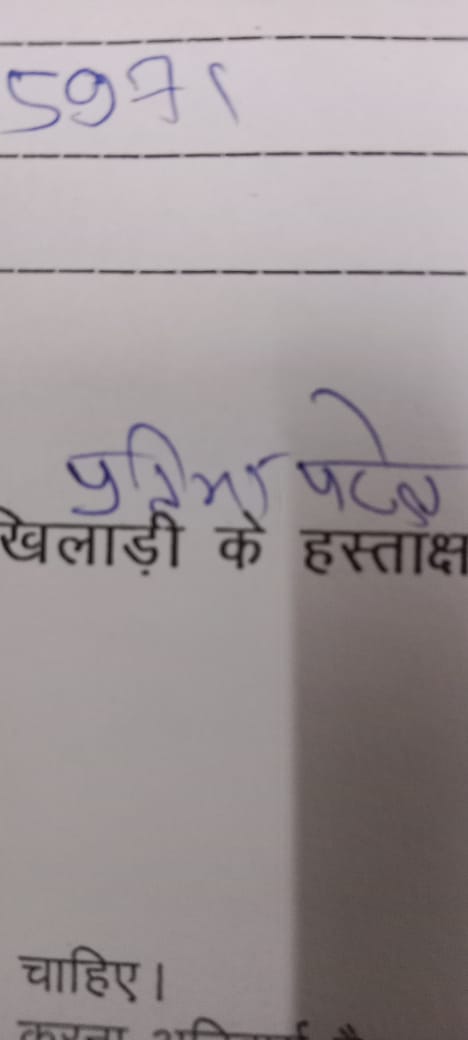 5971
प्रतिमा पटेल
खिलाड़ी के हस्ताक्ष
चाहिए।
करना